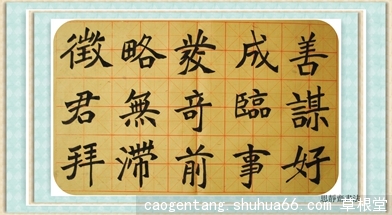 善謀好
成臨事
發竒前
略無滯
徵君拜
caogentang.shuhua66.com 草根堂